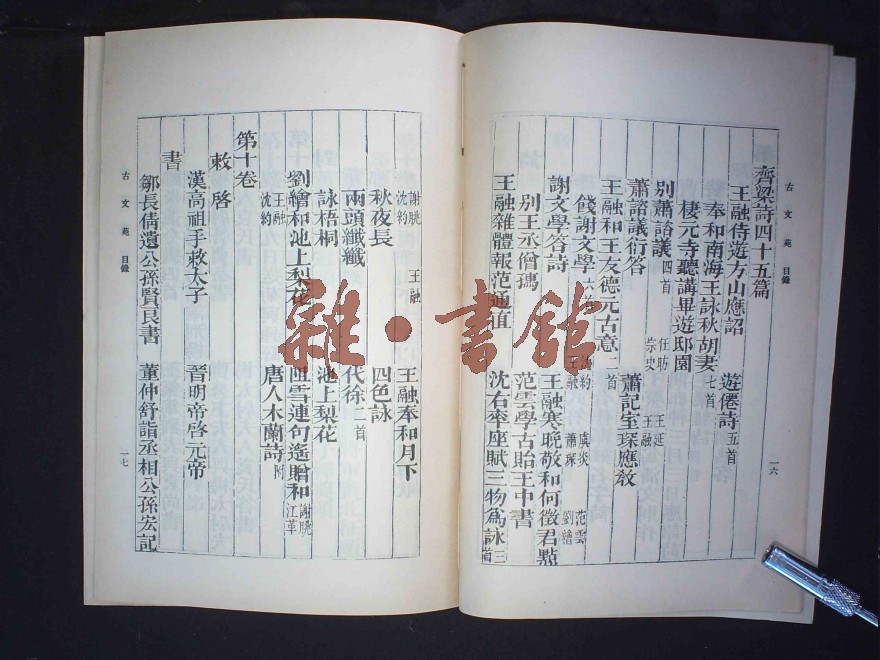 古文苑 目錄
一六
齊梁詩四十五篇
王融侍遊方山應詔 遊僊詩五首
奉和南海王詠秋胡妻七首
棲元寺聽講畢遊邸園
別蕭諮議四首 任昉 宗夬 王延 王融
蕭諮議衍答 蕭記室琛應教
王融和王友德元古意二首
餞謝文學六首 沈約 王融 虞炎 蕭琛 范雲 劉繪
謝文學答詩 王融寒晚敬和何徵君點
別王丞僧瑪 范雲學古貽王中書
王融雜體報范通直 沈右率座賦三物為詠三首
謝朓 沈約 王融 王融奉和月下
秋夜長 四色詠
兩頭纖纖 代徐二首
詠梧桐 池上梨花
劉繪和池上梨花 阻雪連句遙贈和 謝朓 江革
王融 沈約 唐人木蘭詩附
第十卷
敕 啓
漢高祖手敕太子 晉明帝啓元帝
書
鄒長倩遺公孫賢良書 董仲舒詣丞相公孫宏記
古文苑 目錄
一七
雜·書館